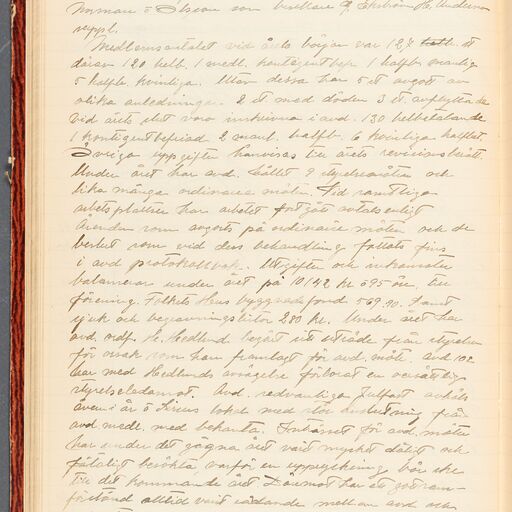 Norman o Olsson som revisorer G. Ekström H. Anderson
suppl.
Medlemsantalet vid årets början var 127 st
därav 120 helb. 1 medl. kontigentbefr. 1 halfb. manlig
5 halfb. kvinliga. Utav dessa har 5 st avgått av
olika anledningar. 2 st med döden 3 st avflyttade
vid årets slut voro inskrivna i avd. 130 helbetalande
1 kontigentbefriad 2 manl. halfb. 6 kvinliga halfbet.
Övriga uppgifter hänvisas till årets revisionsberätt.
Under året har avd. hållit 9 styrelsemöten och
lika många ordinarie möten. Vid samtliga
arbetsplatser har arbetet fortgått avtalsenligt
Ärenden som avgjorts på ordinarie möten och de
beslut som vid dess behandling fattats fins
i avd protokollsbok. Utgifter och inkomster
balanserar under året på 10142 kr 595 öre, till
förening. Folkets Hus byggnadsfond 569.90. Samt
sjuk och begravningshjälp 280 kr. Under året har
avd. ordf. H. Hedlund begärt sitt utträde från styrelsen
för orsak som han framlagt för avd. möte. avd
har med Hedlunds avsägelse förlorat en oersättlig
styrelseledamot. Avd. sedvanliga Julfest avhöls
även i år o Sirius lokal med stor anslutning från
avd medl. med bekanta. Intresset för avd. möten
har under det gågna året varit mycket dåligt och
fåtaligt besökta varför en uppryckning bör ske
till det kommande året Däremot har ett gott sam-
förstånd alltid varit rådande mellan avd och